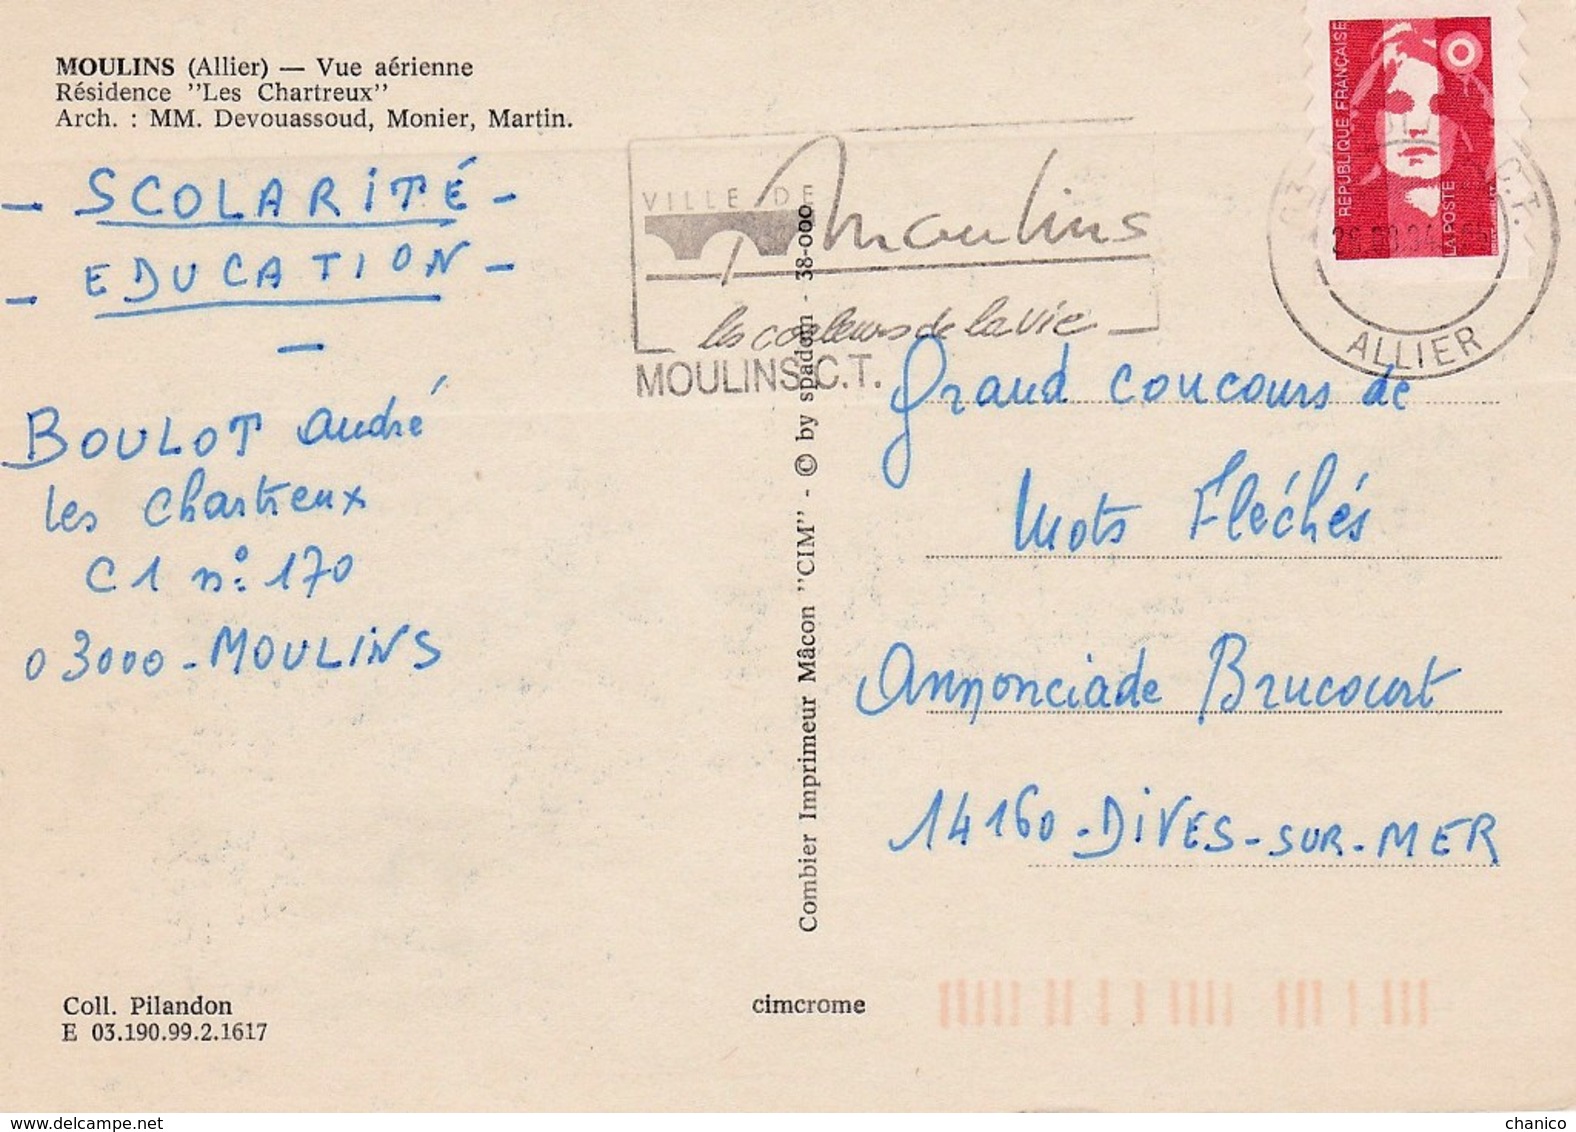 MOULINS (Allier) — Vue aérienne
Résidence "Les Chartreux"
Arch. : MM. Devouassoud, Monier, Martin.
- SCOLARITÉ -
- EDUCATION -
-
BOULOT André
Les Chartreux
C1 n° 170
03000 - MOULINS
VILLE DE
Moulins
les couleurs de la vie
MOULINS C.T.
RÉPUBLIQUE FRANÇAISE
LA POSTE
03
C.T.
ALLIER
Combier Imprimeur Mâcon "CIM" - © by spadem - 38-000
Grand Concours de
Mots Fléchés
Annonciade Brucourt
14160 - DIVES-SUR-MER
Coll. Pilandon
E 03.190.99.2.1617
cimcrome
delcampe.net
chanico